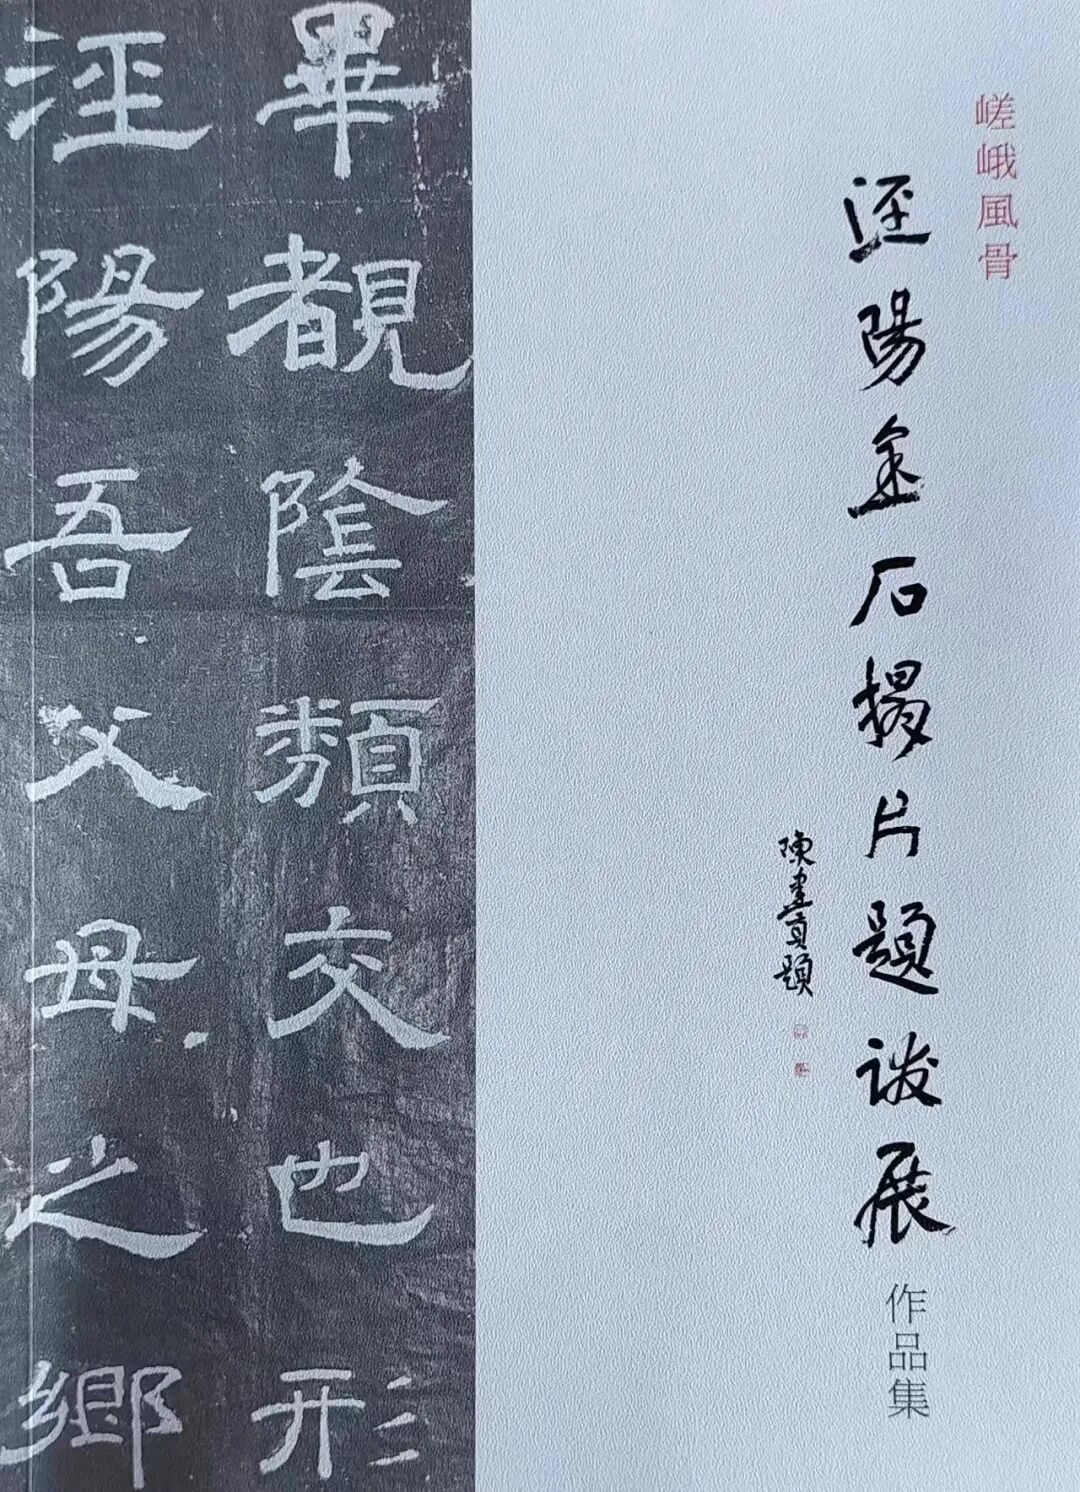 嵯峨風骨
涇陽金石搨片題跋展
作品集
陳建貢題
畢覩陰類交也形
涇陽吾父母之鄉